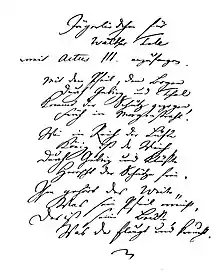 Jägerliedchen für
Walther Tell
Actus III.
Mit dem Pfeil, dem Bogen
Durch Gebirg und Thal
Kommt der Schütz gezogen
Früh im Morgenstrahl.
Wie im Reich der Lüfte
König ist der Weih,
Durch Gebirg und Klüfte
Herrscht der Schütze frei.
Ihm gehört das Weite
Was sein Pfeil erreicht,
Das ist seine Beute
Was da fleugt und kreucht.